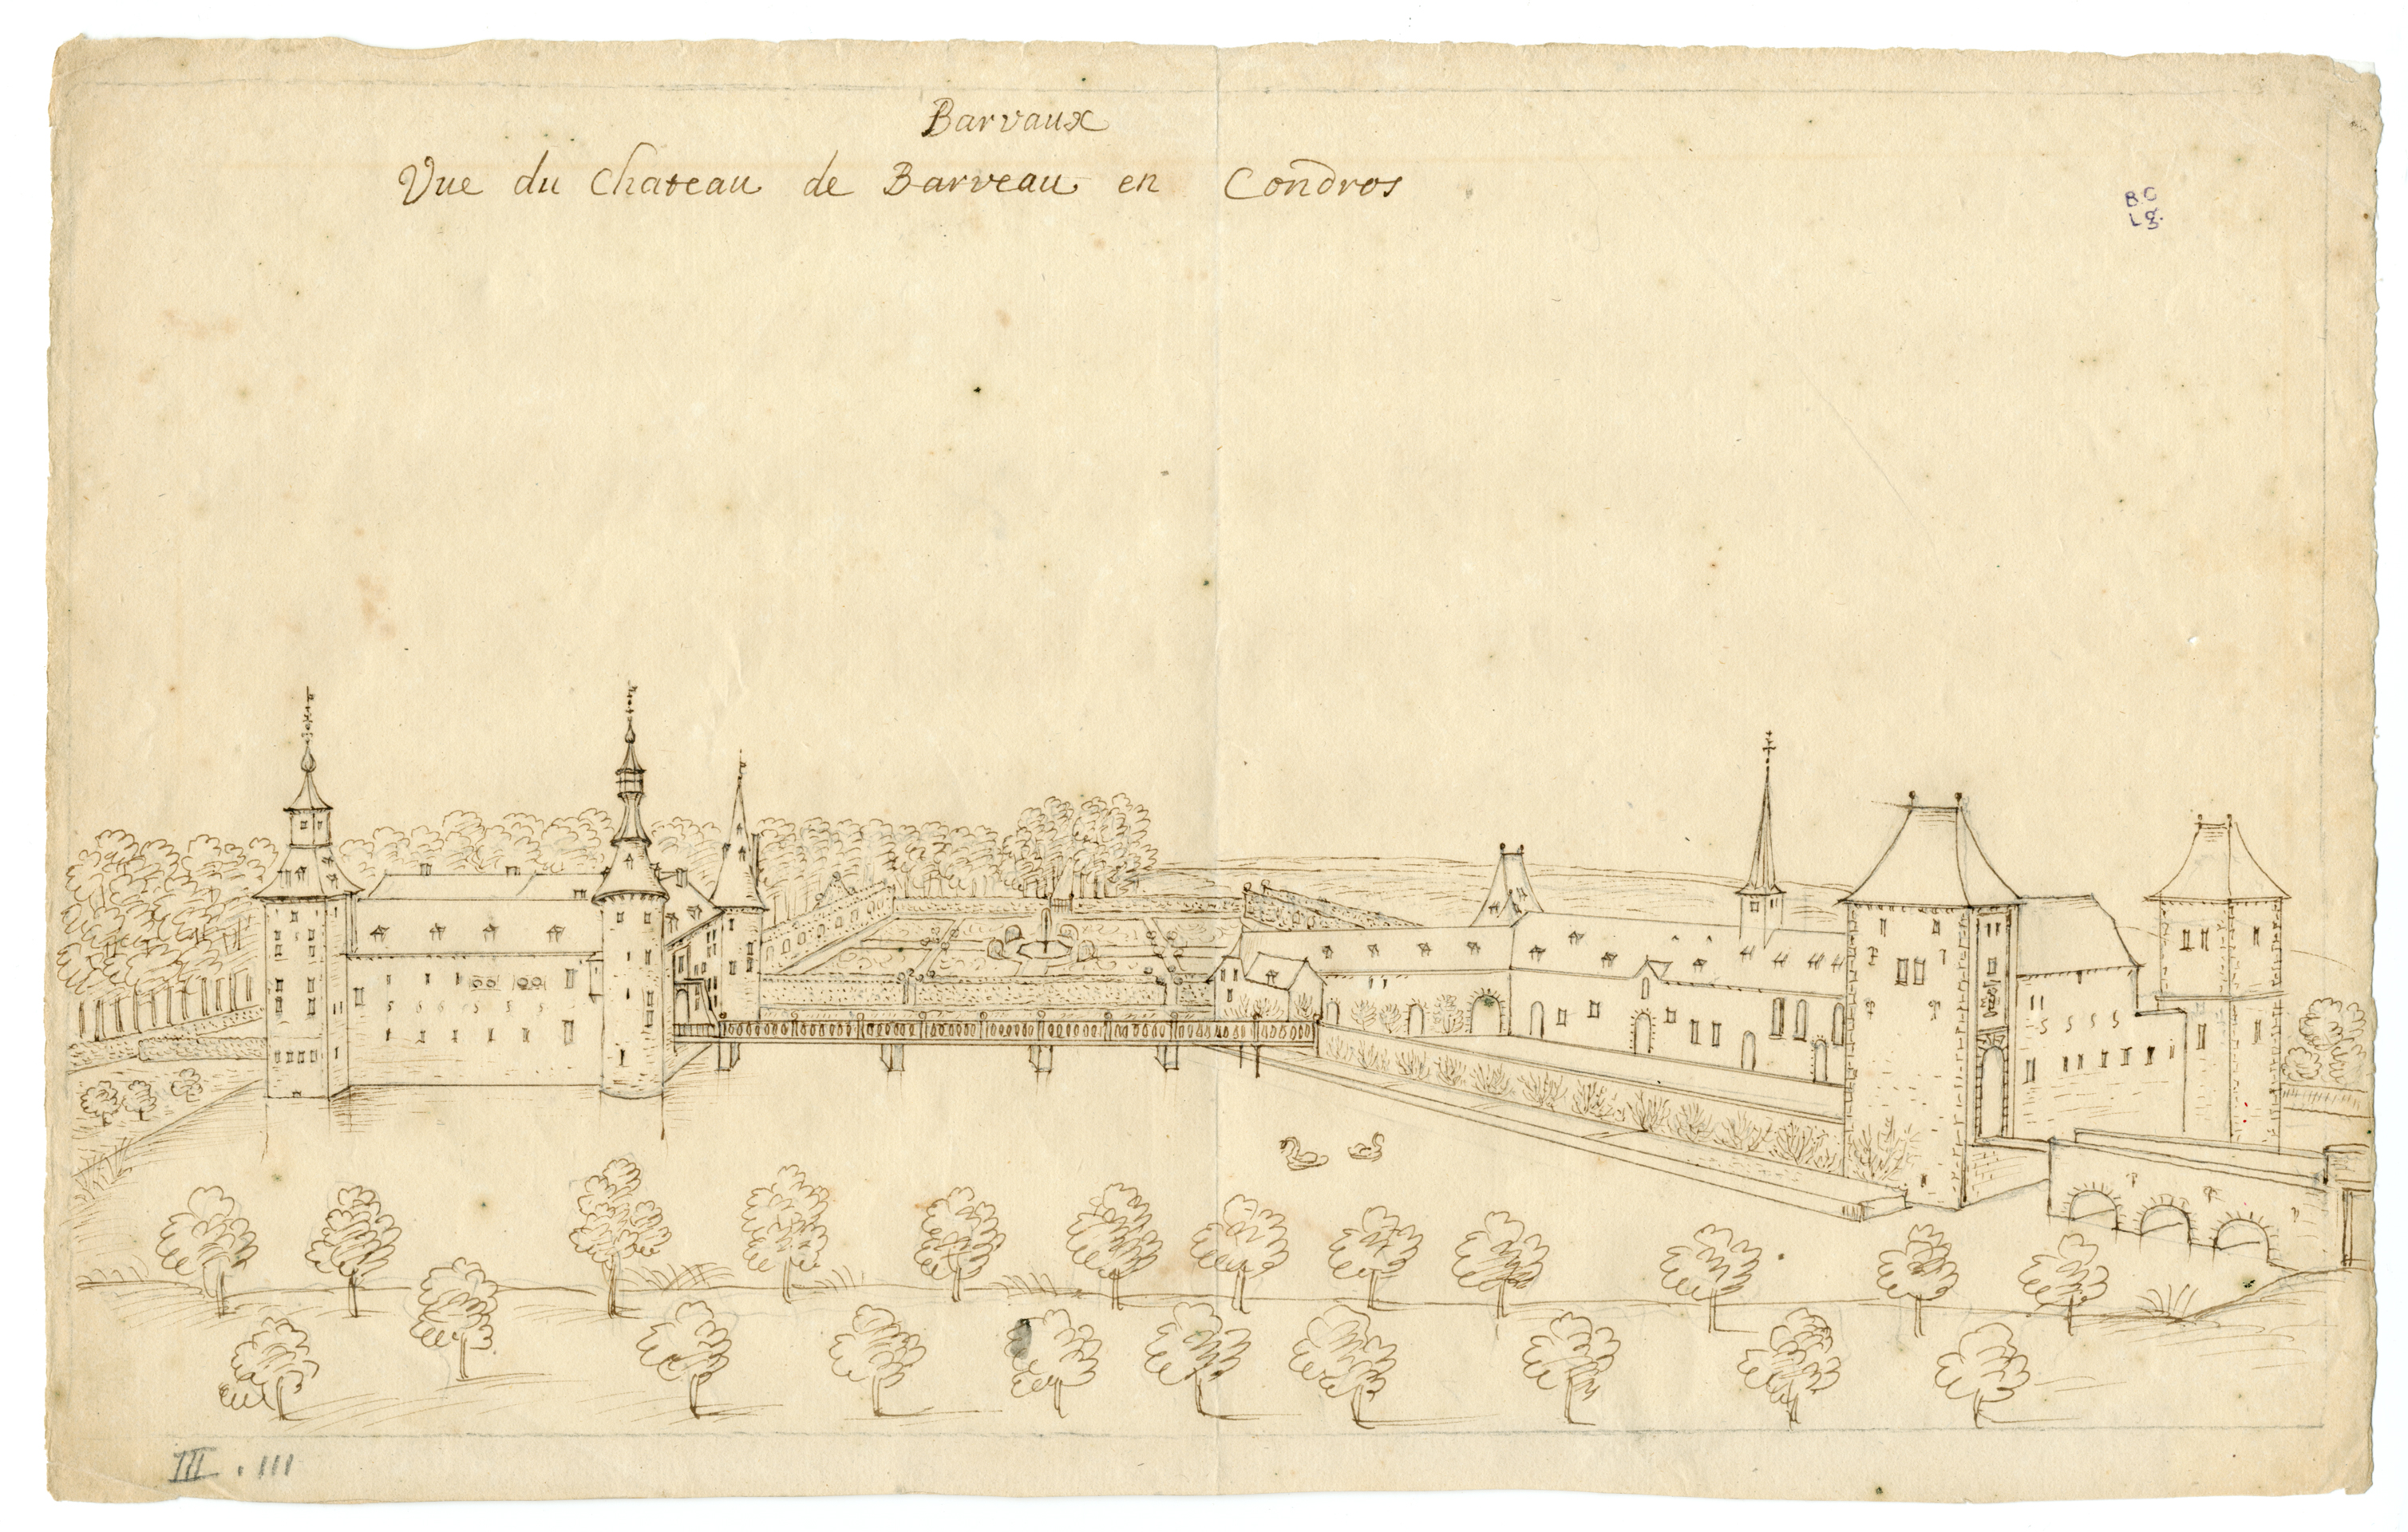 Barvaux
Vue du Chateau de Barveau en Condros
B.C
Lg.
III . 111